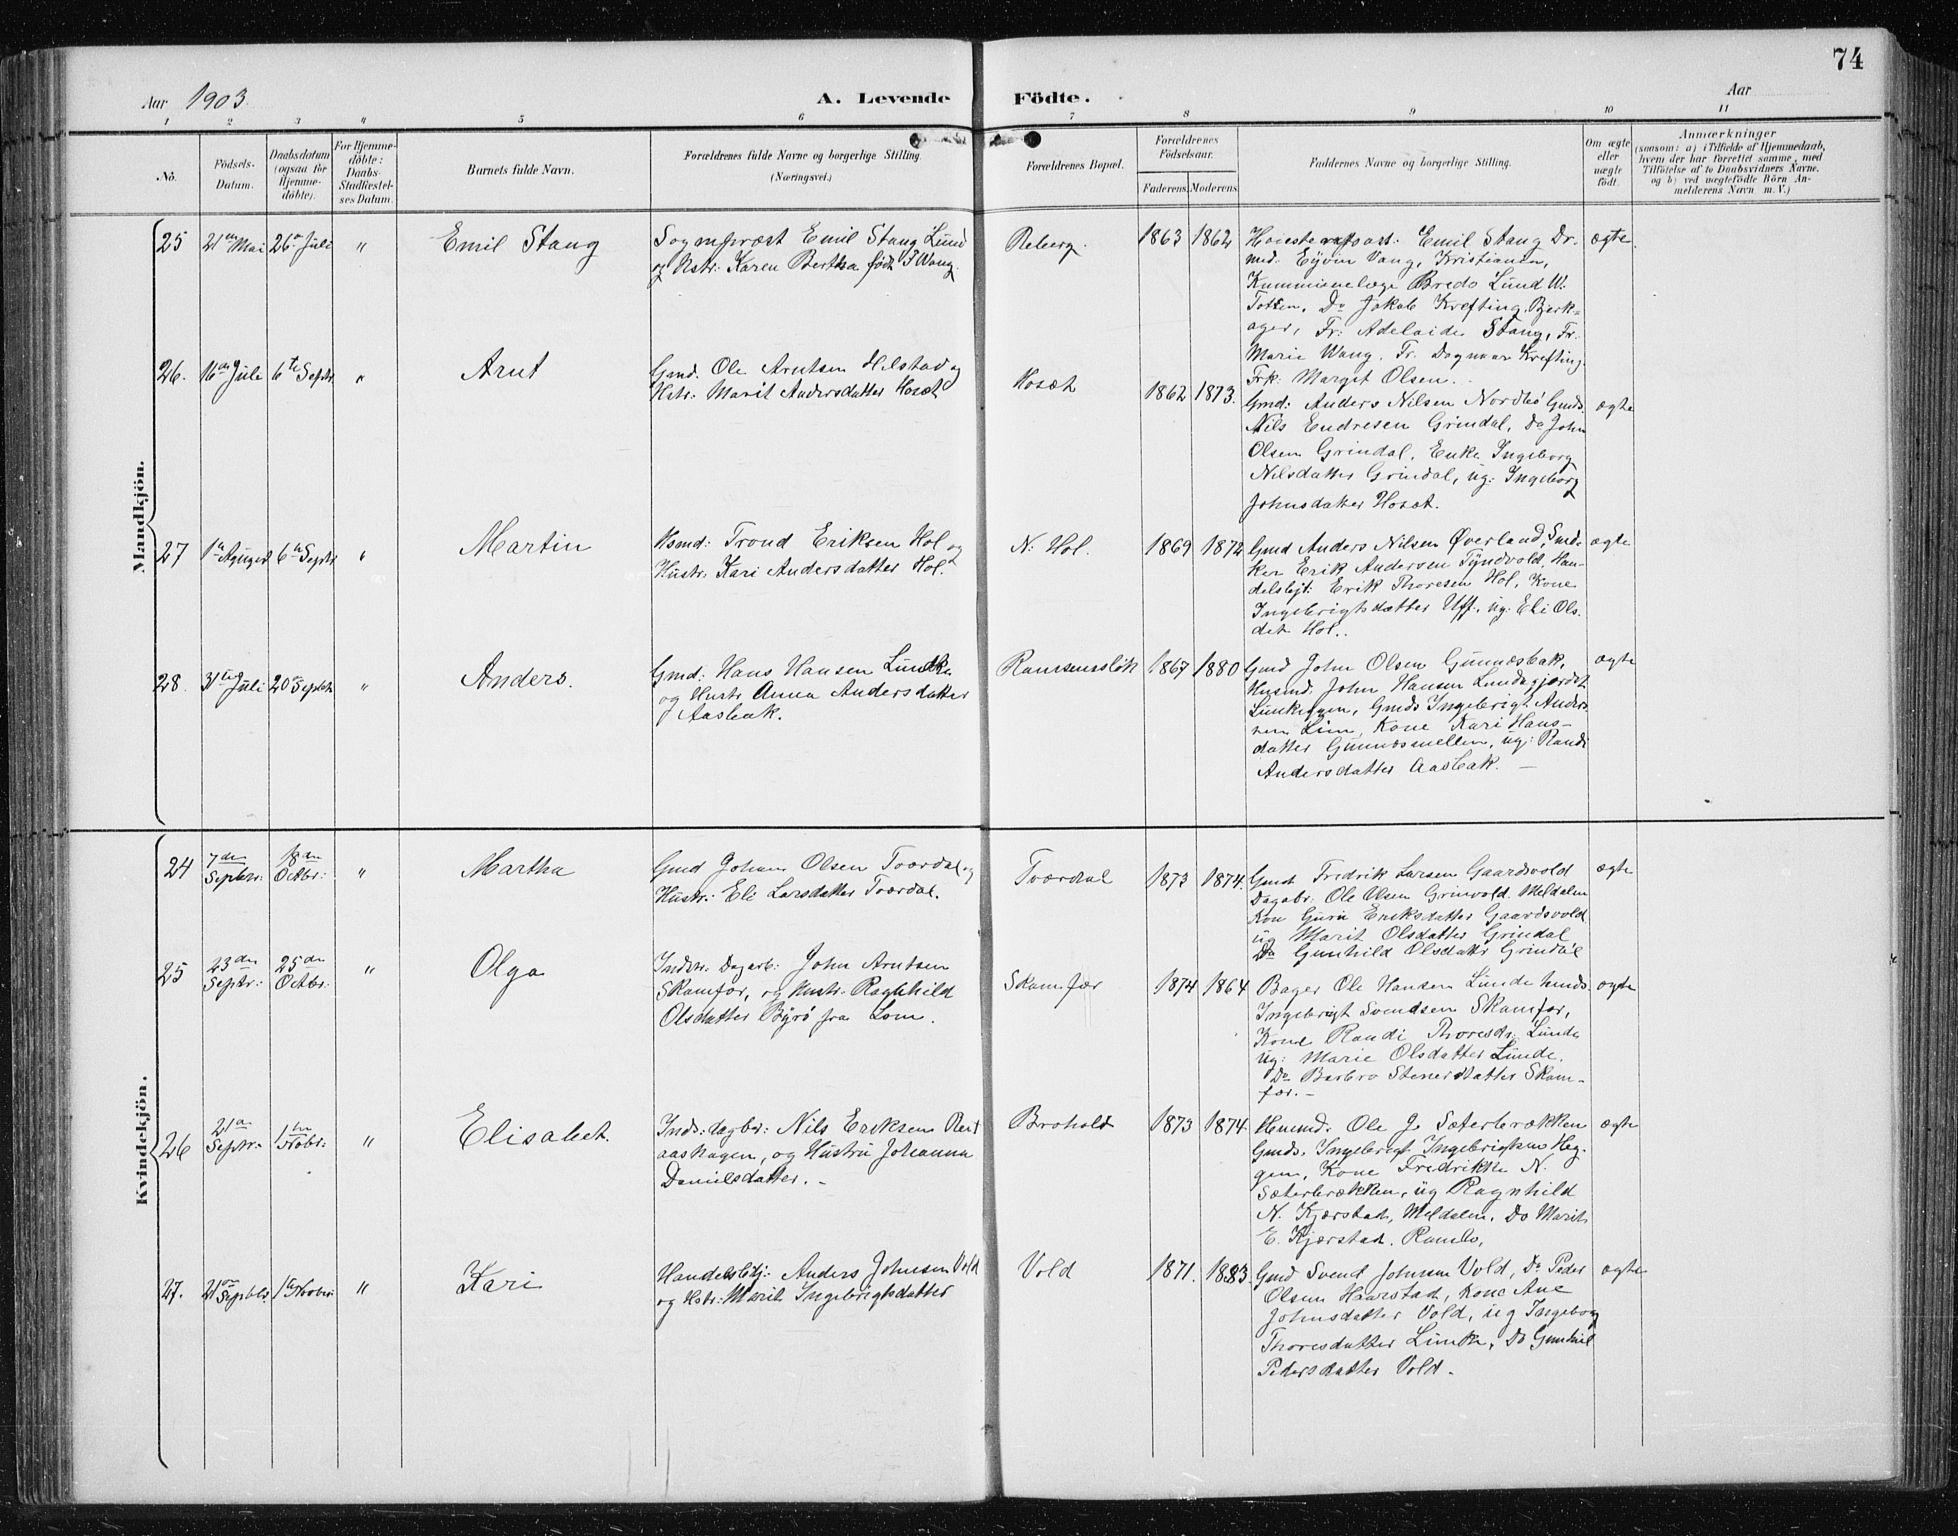 74
Aar 1903.
A. Levende Födte.
Aar
1 2 3 4 5 6 7 8 9 10 11
No.
Födsels-
Datum.
Daabsdatum
(ogsaa for
Hjemme-
döbte).
For Hjemme-
döbte:
Daabs-
Stadfæstel-
ses Datum.
Barnets fulde Navn.
Forældrenes fulde Navne og borgerlige Stilling.
(Næringsvei.)
Forældrenes Bopæl.
Forældrenes
Födselsaar.
Faderens. Moderens.
Faddernes Navne og borgerlige Stilling.
Om ægte
eller
uægte
født.
Anmærkninger
(saasom: a) i Tilfælde af Hjemmedaab,
hvem der har forrettet samme, med
Tilföielse af to Daabsvidners Navne,
og b) ved uægtefödte Börn An-
melderens Navn m. V.)
Mandkjön.
25 21de Mai 26de Juli " Emil Stang
Sogneprest Emil Stang Lund
og Hstr: Karen Bertha født Wang.
Reberg. 1863 1862
Emil Stang Dr.
med. Eyvin Vang, Kristiania,
Kommunelæge Bredo Lund W.
Toten, Do Jakob Krefting, Bjerk-
ager, Fr: Adelaide Stang, Fr.
Marie Wang, Fr. Dagmar Krefting,
Frk: Margit Olsen.
ægte
26. 16de Juli 6te Septr " Arnt
Gmd. Ole Arntsen Helstad og
Hstr: Marit Andersdatter Hosæt
Hosæt 1862 1873.
Gmd: Anders Nilsen Nordbö Gmds.
Nils Endresen Grindal, Do John
Olsen Grindal, Enke Ingeborg
Nilsdatter Grindal, ug: Ingeborg
Johnsdatter Hosæt.
ægte
27 1te August 6te Septr " Martin
Hsmd: Trond Eriksen Hol og
Hustr. Kari Andersdatter Hol.
N: Hol. 1869 1872
Gmd Anders Nilsen Øverland, Sned-
ker Erik Andersen Tyndvold, Han-
delsbjt: Erik Thoresen Hol, Kone
Ingebrigtsdatter Uff, ug: Eli Ols-
datt Hol.
ægte
28. 31te Juli 20de Septbr " Anders.
Gmd: Hans Hansen Lundke
og Hustr Anna Andersdatter
Aasbak.
Ramsemslök 1867 1880
Gmd John Olsen Gunnesbak,
Husmd. John Hansen Lundagjerdet
Gmds Ingebrigt Anders-
sen Lim, Kone Kari Hans-
datter Gunnesmellen, ug: Randi
Andersdatter Aasbak.
ægte
Kvindekjön.
24 7de Septbr: 18de Octbr: " Martha
Gmd Johan Olsen Tværdal og
Hustr: Eli Larsdatter Tværdal.
Tværdal 1873 1874.
Gmd Fredrik Larsen Gaardsvold
Dagabr: Ole Olsen Grinvold Meldalen
Kon Guru Eriksdatter Gaardsvold
ug Marit Olsdatter Grindal
Do Gunhild Olsdatr Grindal
ægte
25 23de Septr: 25de Octbr: " Olga
Indstr. Dagarb: John Arntsen
Skamfær, og Hustr: Ragnhild
Olsdatter Byrö fra Lom.
Skamfær 1874 1864
Bager Ole Hansen Lunde Gmds.
Ingebrigt Svendsen Skamfær,
Kone Randi Thoresdr. Lunde
ug: Marie Olsdatter Lunde.
Do Barbro Stenersdatter Skam-
fær.
ægte
26 21de Septr. 1te Novbr: " Elisabet.
Inds: Dagbr: Nils Eriksen
og Hustru Johanna
Danielsdatter.
Brohold 1873 1874.
Husmd. Ole J. Sæterbrækken
Gmds. Ingebrigt Ingebrigtsens Heg-
gen, Kone Fredrikke N.
Sæterbrækken, ug Ragnhild
N. Kjærstad, Meldalen. Do Marit
E. Kjærstad. Rambo,
ægte
27. 21de Septbr. 1te Novbr: " Kari
Handelsbtj: Anders Johnsen Vold
og Hstr: Marit Ingebrigtsdatter
Vold 1871. 1883.
Gmd Svend Johnsen Vold, Do Peder
Olsen Haarstad, Kone Ane
Johnsdatter Vold, ug Ingeborg
Thoresdatter Do Gunhild
Pedersdatter Vold.
ægte